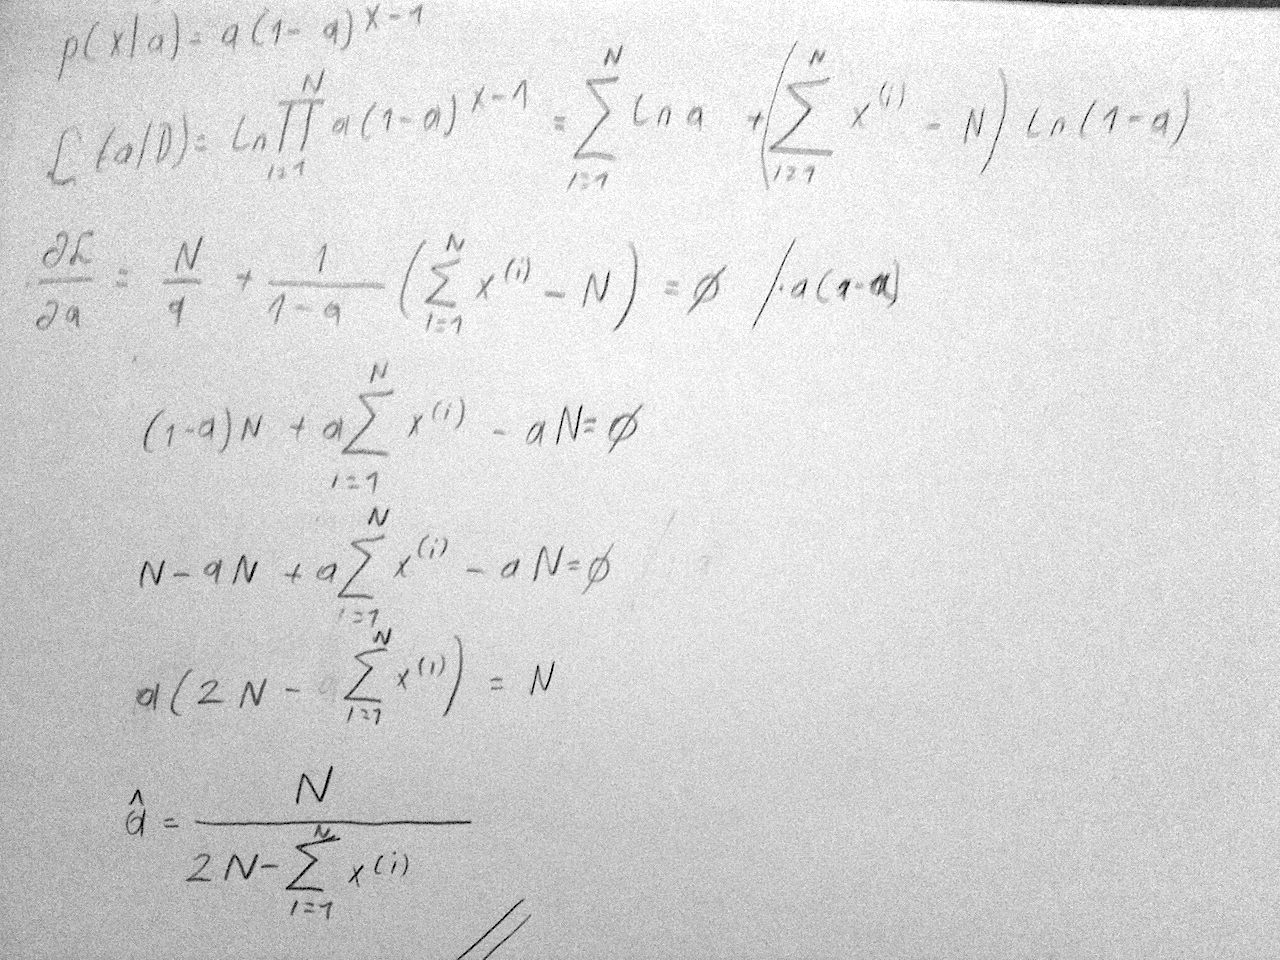 p(x|a) = a(1-a)^{x-1}
L(a|D) = ln ∏_{i=1}^{N} a(1-a)^{x-1} = ∑_{i=1}^{N} ln a + (∑_{i=1}^{N} x^{(i)} - N) ln(1-a)
∂L/∂a = N/a + 1/(1-a) (∑_{i=1}^{N} x^{(i)} - N) = ∅ /·a(1-a)
(1-a)N + a∑_{i=1}^{N} x^{(i)} - aN = ∅
N - aN + a∑_{i=1}^{N} x^{(i)} - aN = ∅
a(2N - ∑_{i=1}^{N} x^{(i)}) = N
â = N/(2N - ∑_{i=1}^{N} x^{(i)})